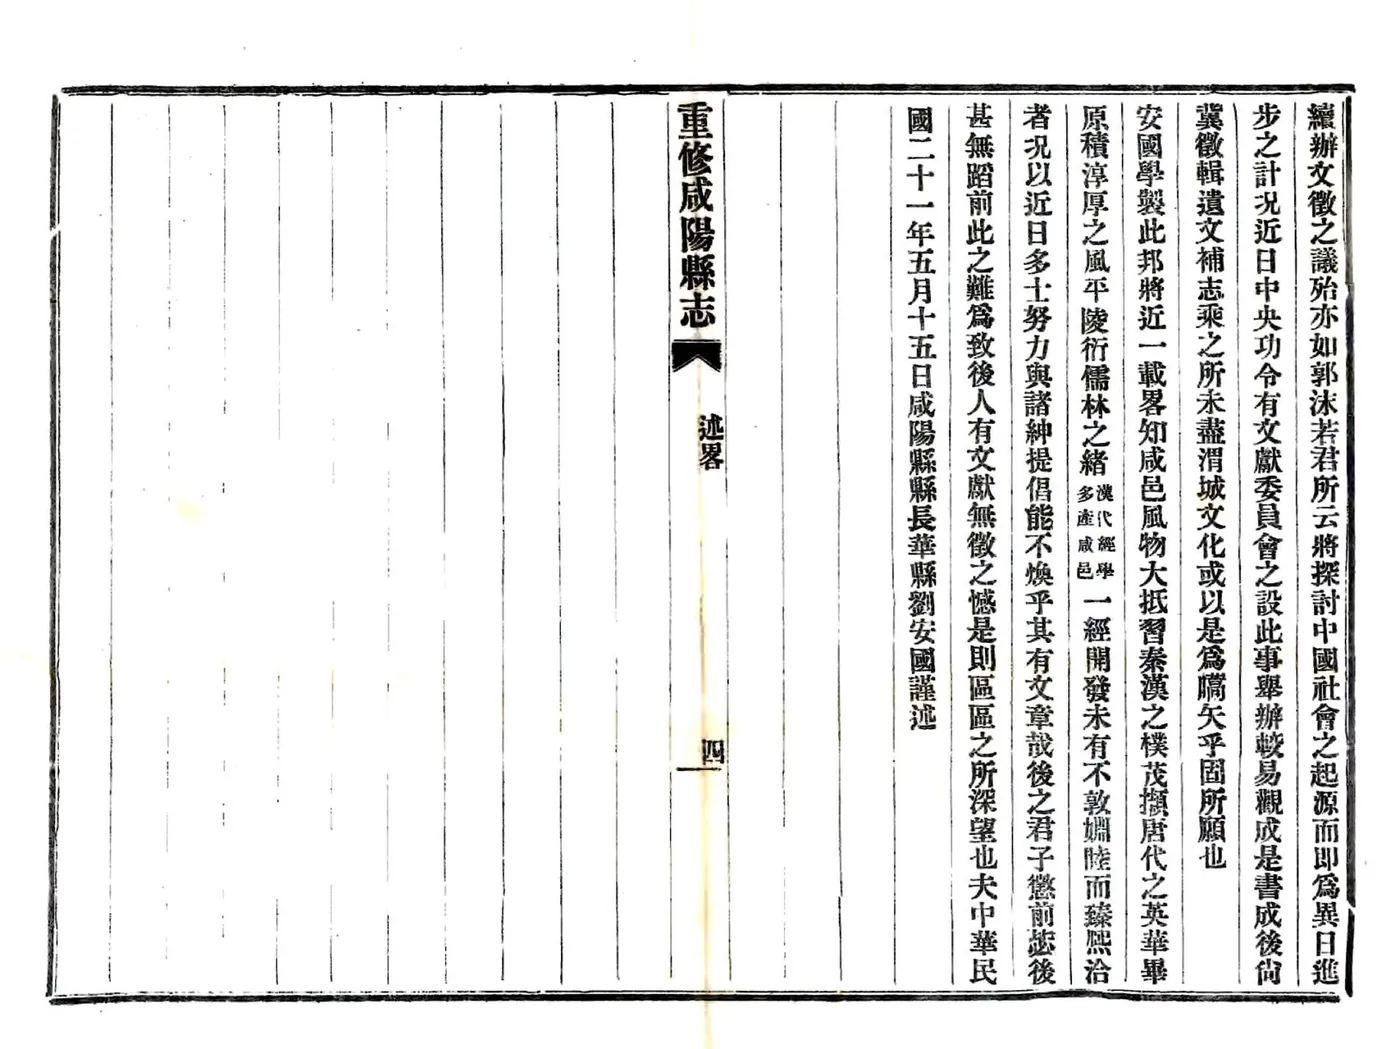 續辦文徵之議殆亦如郭沫若君所云將探討中國社會之起源而即爲異日進
步之計況近日中央功令有文獻委員會之設此事舉辦較易觀成是書成後尙
冀徵輯遺文補志乘之所未盡渭城文化或以是爲嚆矢乎固所願也
安國學製此邦將近一載畧知咸邑風物大抵習秦漢之樸茂擷唐代之英華畢
原積淳厚之風平陵衍儒林之緒漢代經學多產咸邑一經開發未有不敦婣睦而臻熙洽
者况以近日多士努力與諸紳提倡能不煥乎其有文章哉後之君子懲前毖後
甚無蹈前此之難爲致後人有文獻無徵之憾是則區區之所深望也夫中華民
國二十一年五月十五日咸陽縣縣長華縣劉安國謹述
重修咸陽縣志
述畧
四